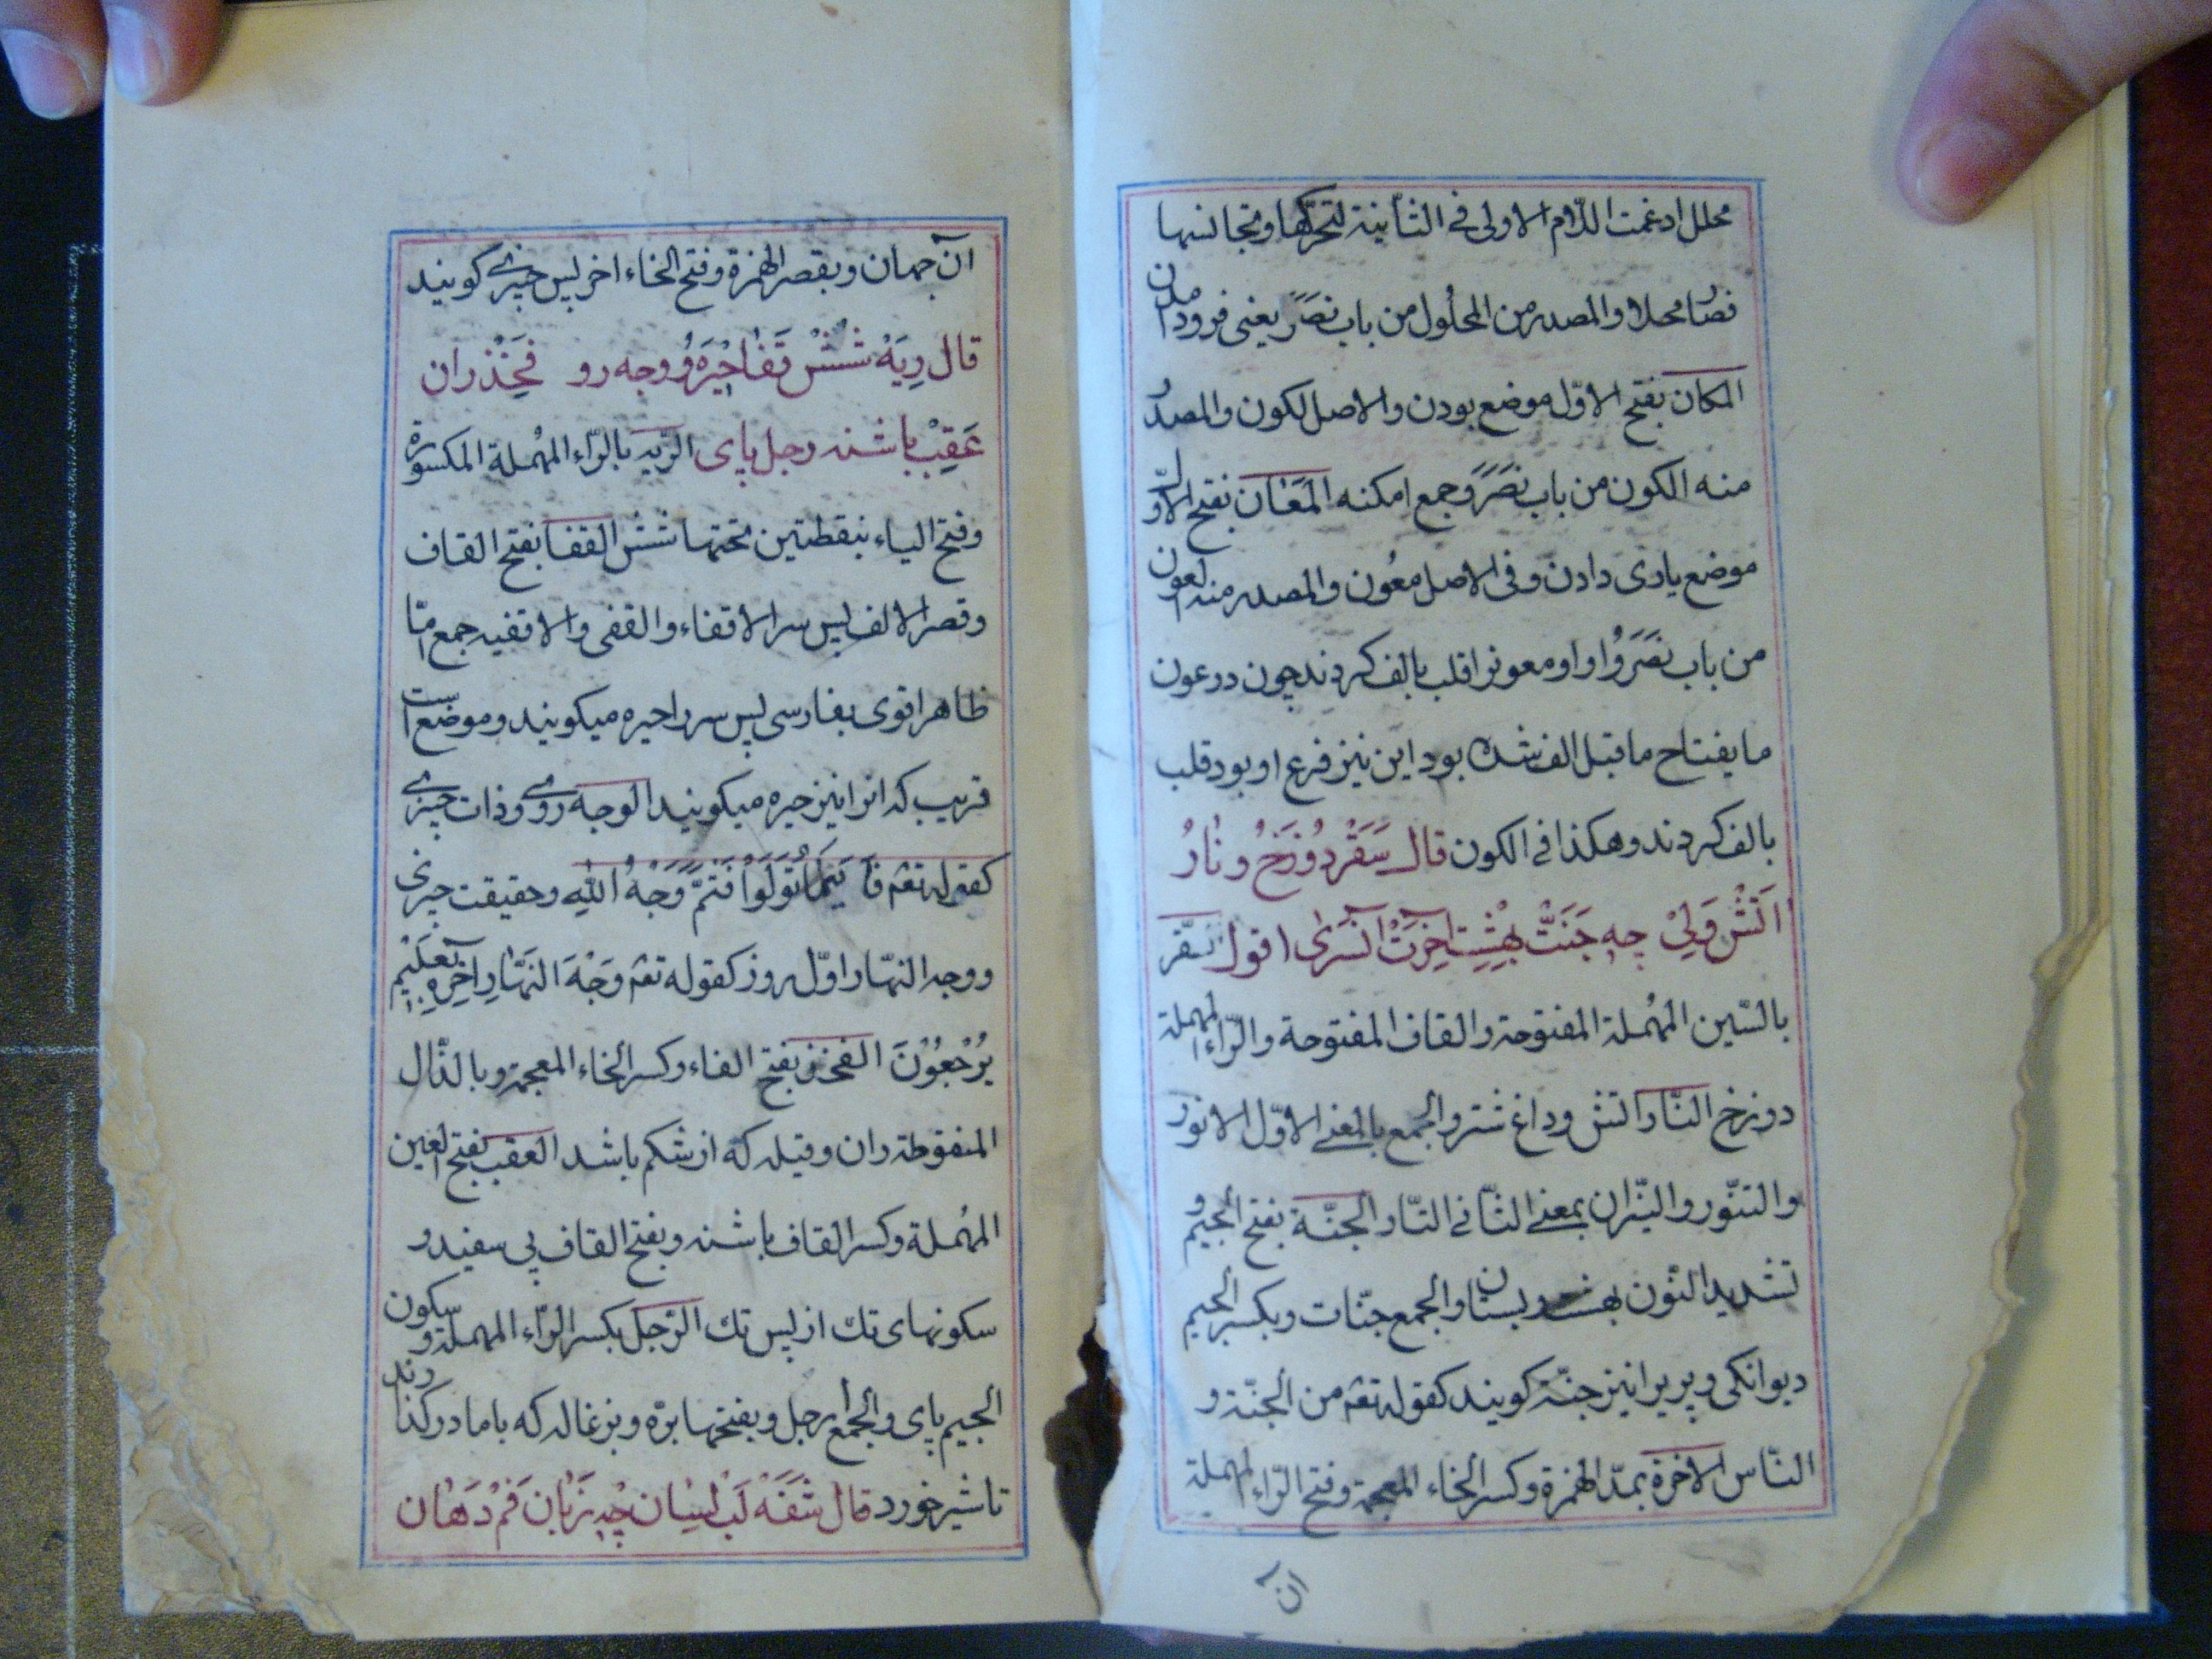 محلل ادغمت اللّام الاولی فی الثانیة لتحرّکها وتجانسها
فصار محلا والمصدر من المحلول من باب نَصَرَ یعنی فرودآمدن
المکان بفتح الاوّل موضع بودن والاصل لکون والمصدر
منه الکون من باب نَصَرَ وجمع امکنه المَعٰان بفتح الاوّل
موضع یاری دادن وفی الاصل معُون والمصدر منه العون
من باب نَصَرَ واو معونرا قلب بالف کردند چون در عون
ما یفتاح ماقبل الف شده بود این نیز فرع او بود قلب
بالف کردند وهکذا فی الکون قال سَقَرْ دُوزَخُ و نٰارُ
اتش وَلِیْ چه جَنَتْ بهْشِتِ اخِرَتْ آنسَرٰی اقول سَقر
بالسّین المهُملة المفتوحة والقاف المفتوحة والرّاء المهملة
دوزخ النّار اتش وداغ شتر والجمع بالمعنی الاوّل الانور
والتنّور والنیّران بمعنی الثّانی النّار الجنّة بفتح الجیم و
تشدید النّون بهشت و بستان والجمع جنّات و بکسر الجیم
دیوانکی و پریرا نیز جنّة کویند کقوله تعم من الجنّة و
النّاس الاخرة بمدّ الهمزة وکسر الخاء المعجمة وفتح الرّاء المهملة
آن
آن جهان و بقصر الهمزة وفتح الخاء اخر پس چیزی کویند
قال رِیَهْ شُشْ قَفٰا چیره و وجه رو فَخِذْ ران
عَقِبْ پاشنه رجل پای الرّیه بالرّاء المهُملة المکسورة
وفتح الیاء بنقطتین تحتها شش القفا بفتح القاف
وقصر الالف پس سر الاقفاء والقفی والاقفیه جمع امّا
ظاهرا قوی بفارسی پس سر را چیره میکویند و موضع است
قریب که انرا نیز چیره میکویند الوجه روی وذات چیزی
کقوله تعم فَاَیْنَمٰا تُوَلّوُا فَثَمَّ وَجْهُ اللّٰهِ وحقیقت چیزی
ووجه النهّار اوّل روز کقوله تعم وَجْهَ النَهّارِ وَاٰخِرِه لَعَلّهُمْ
یُرْجَعُوْنَ الفخذ بفتح الفاء وکسر الخاء المعجمة وبالذّال
المنقوطة ران وقیله که از شکم باشد العقب بفتح العین
المهُملة وکسر القاف پاشنه وبفتح القاف پی سفید و
سکونهای تک از پس تک الرّجل بکسر الرّاء المهملة و سکون
الجیم پای والجمع ارجل و بفتحها برّه و بزغاله که با مادر کذارند
تا شیر خورد قال شَفَهْ لَبْ لِسٰان چه زَبٰان فَمْ دَهٰان